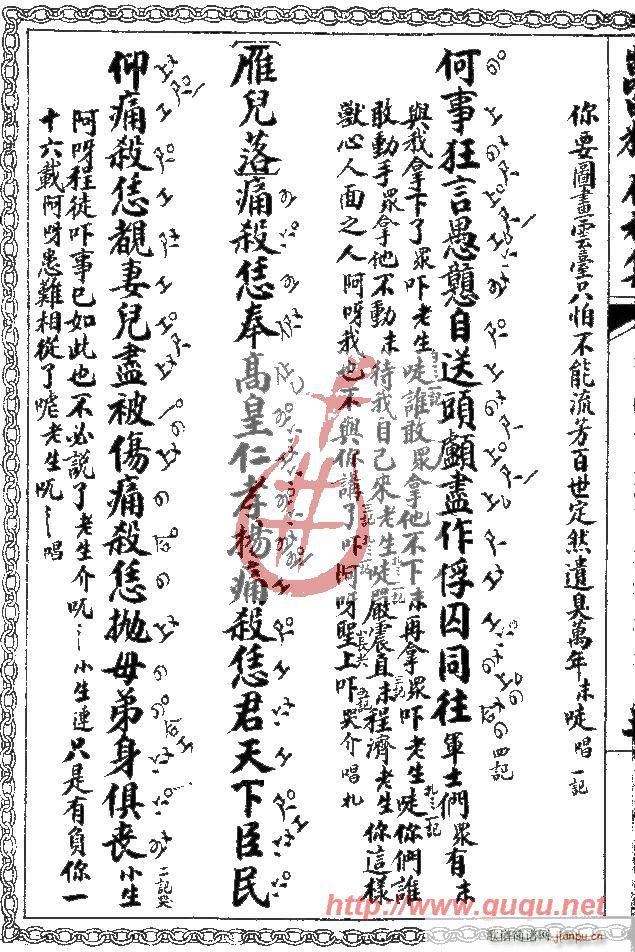 你要圖畫雲臺只怕不能流芳百世定然遺臭萬年末唗唱一記
何事狂言愚戇自送頭顱盡作俘囚同往軍士們眾有末
與我拿下了眾吓老生唗誰敢眾拿他不下末再拿眾吓老生唗你們誰
敢動手眾拿他不動末待我自己來老生唗嚴震直末程濟老生你這樣
獸心人面之人阿呀我也不與你講了吓阿呀聖上吓哭介唱札
雁兒落痛殺恁奉高皇仁孝揚痛殺恁君天下臣民
仰痛殺恁覩妻兒盡被傷痛殺恁拋母弟身俱喪小生
阿呀程徒吓事已如此也不必說了老生介呃小生連只是有負你一
十六載阿呀患難相從了嘘老生呃唱
http://www.ququ.net
jianpu.cn